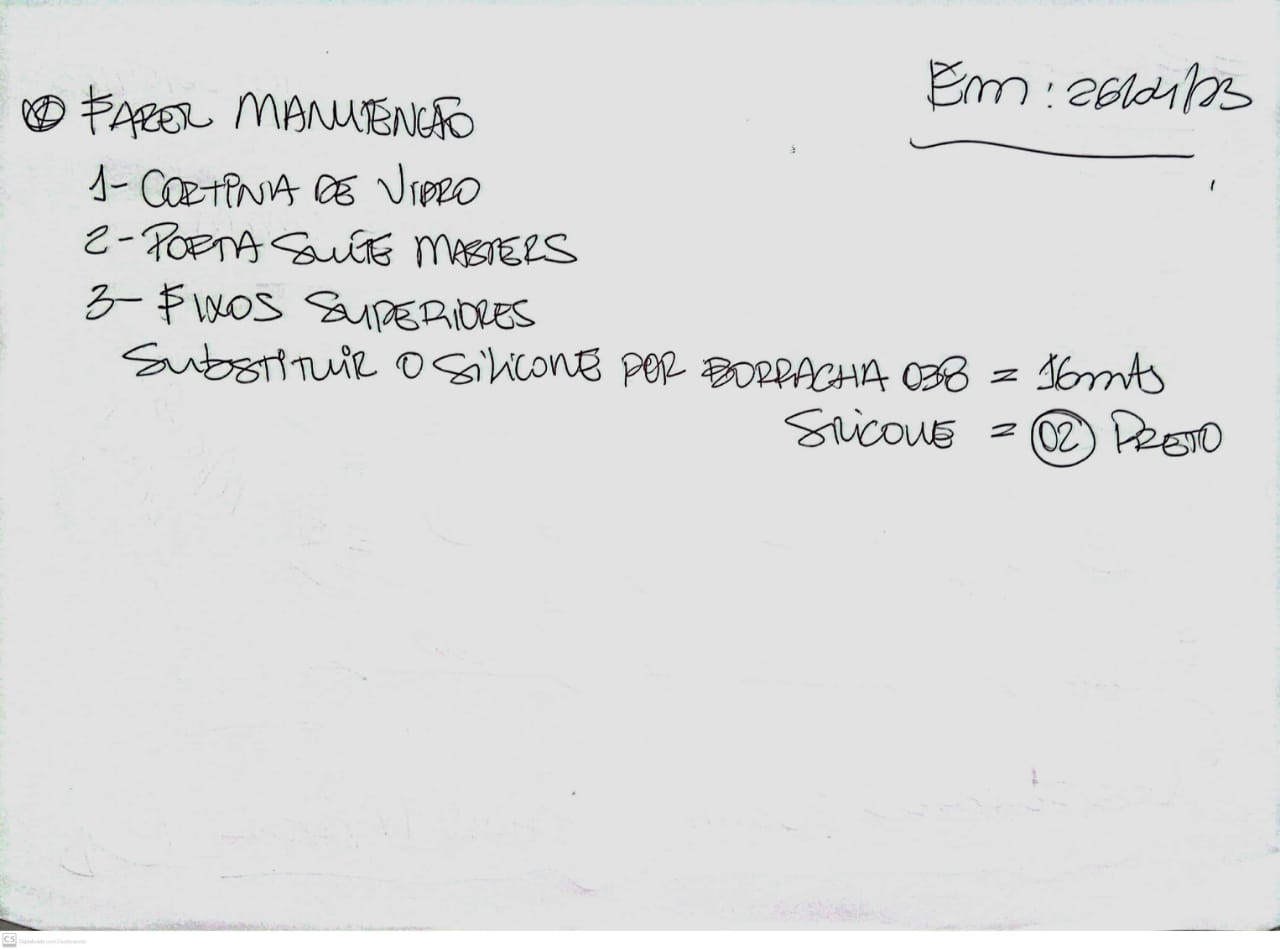 Em: 26/04/23
FAZER MANUTENCÃO
1- CORTINA DE VIDRO
2- PORTA SUÍTE MASTERS
3- FIXOS SUPERIORES
SUbSTITUIR O SILICONE POR BORRACHA 038 = 16mts
SILICONE = 02 PRETO
CS Digitalizado com CamScanner